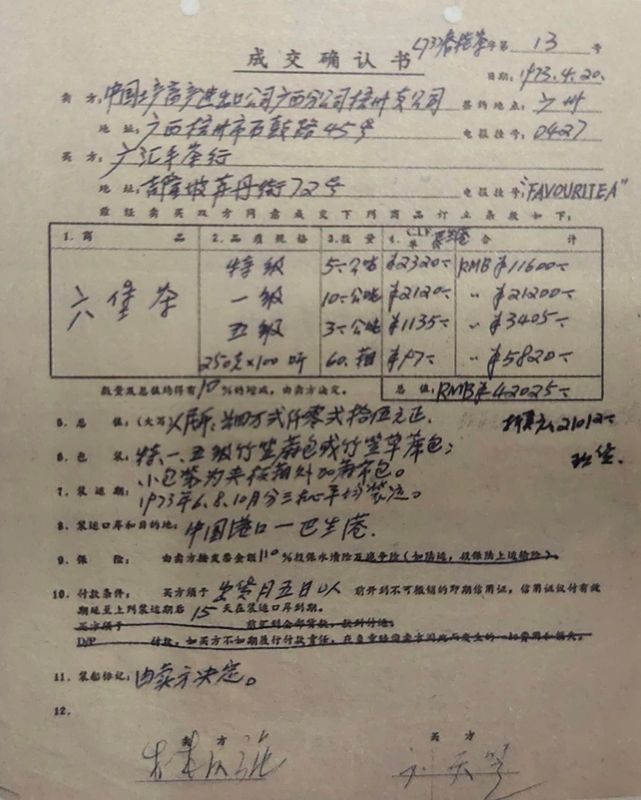 成交确认书
(73)春梧茶字第 13 号
日期: 1973.4.20.
卖方: 中国土产畜产进出口公司广西分公司梧州支公司 签约地点: 广州
地址: 广西梧州市石鼓路45号 电报挂号: 0427
买方: 广汇丰茶行
地址: 吉隆坡 街72号 电报挂号: "FAVOURITEA"
兹经卖买双方同意成交下列商品订立条款如下:
1.商品 2.品质规格 3.数量 4.单价 C.I.F. 合计
六堡茶
特级 5-公吨 ¥2320- RMB¥11600-
一级 10-公吨 ¥2120- 〃 ¥21200-
五级 3-公吨 ¥1135- 〃 ¥3405-
250克×100听 60.箱 ¥97- 〃 ¥5820-
数量及总值均得有10%的增减,由卖方决定。 总值: RMB¥42025-
5.总值:(大写) 人民币:肆万弍仟零弍拾伍元正.
6.包装: 特、一、五级竹笠蔴包或竹笠草蓆包;
小包装为夹板箱外加蔴布包。
7.装运期: 1973年6.8.10月分三批平均装运。
8.装运口岸和目的地: 中国港口—巴生港.
9.保险: 由卖方按发票金额110%投保水渍险及战争险(如陆运,投保陆上运输险)。
10.付款条件: 买方须于 装货月五日以 前开到不可撤销的即期信用证,信用证议付有效
期延至上列装运期后 15 天在装运口岸到期。
买方须于 前汇到全部货款,款到付运。
D/P 付款,如买方不如期履行付款责任,
11.装船标记: 由卖方决定。
12.
卖方 买方